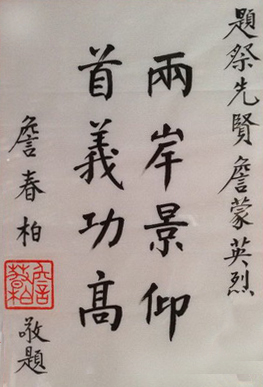 題祭先賢詹蒙英烈
兩岸景仰
首義功高
詹春柏
敬題